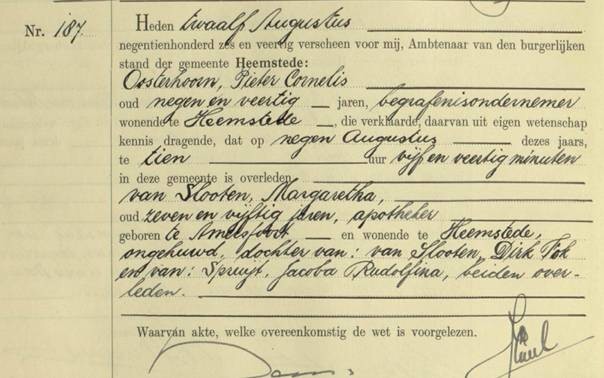 Nr. 187.
Heden twaalf Augustus
negentienhonderd zes en veertig verscheen voor mij, Ambtenaar van den burgerlijken
stand der gemeente Heemstede:
Oosterhoorn, Pieter Cornelis
oud negen en veertig jaren, begrafenisondernemer
wonende te Heemstede, die verklaarde, daarvan uit eigen wetenschap
kennis dragende, dat op negen Augustus dezes jaars,
te tien uur vijf en veertig minuten
in deze gemeente is overleden
van Slooten, Margaretha,
oud zeven en vijftig jaren, apotheker
geboren te Amersfoort en wonende te Heemstede,
ongehuwd, dochter van: van Slooten, Dirk Fok
en van: Spruijt, Jacoba Rudolfina, beiden over-
leden.
Waarvan akte, welke overeenkomstig de wet is voorgelezen.